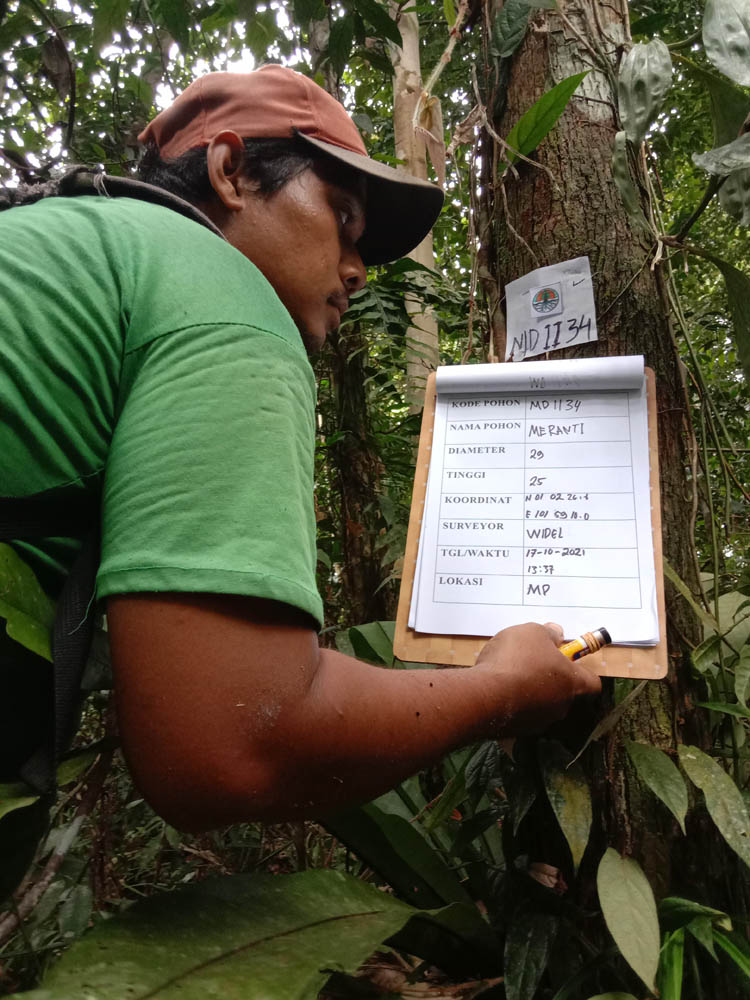 MD II 34
KODE POHON MD II 34
NAMA POHON MERANTI
DIAMETER 29
TINGGI 25
KOORDINAT N 01 02 26.1
E 101 59 10.0
SURVEYOR WIDEL
TGL/WAKTU 17-10-2021
13:37
LOKASI MP